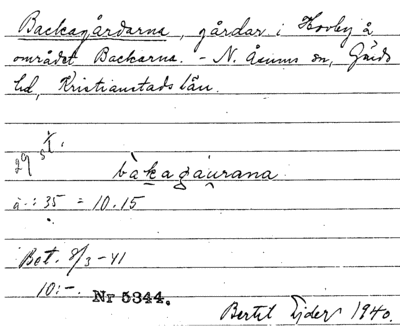 Backagårdarna, gårdar i Hovby å
området Backarna. - N. Åsums sn, Gärds
hd, Kristianstads län.
29 st.
bàkagáurana
à -: 35 = 10.15
Bet. 8/3 -41
10:-. Nr 5344.
Bertil Ejder 1940.